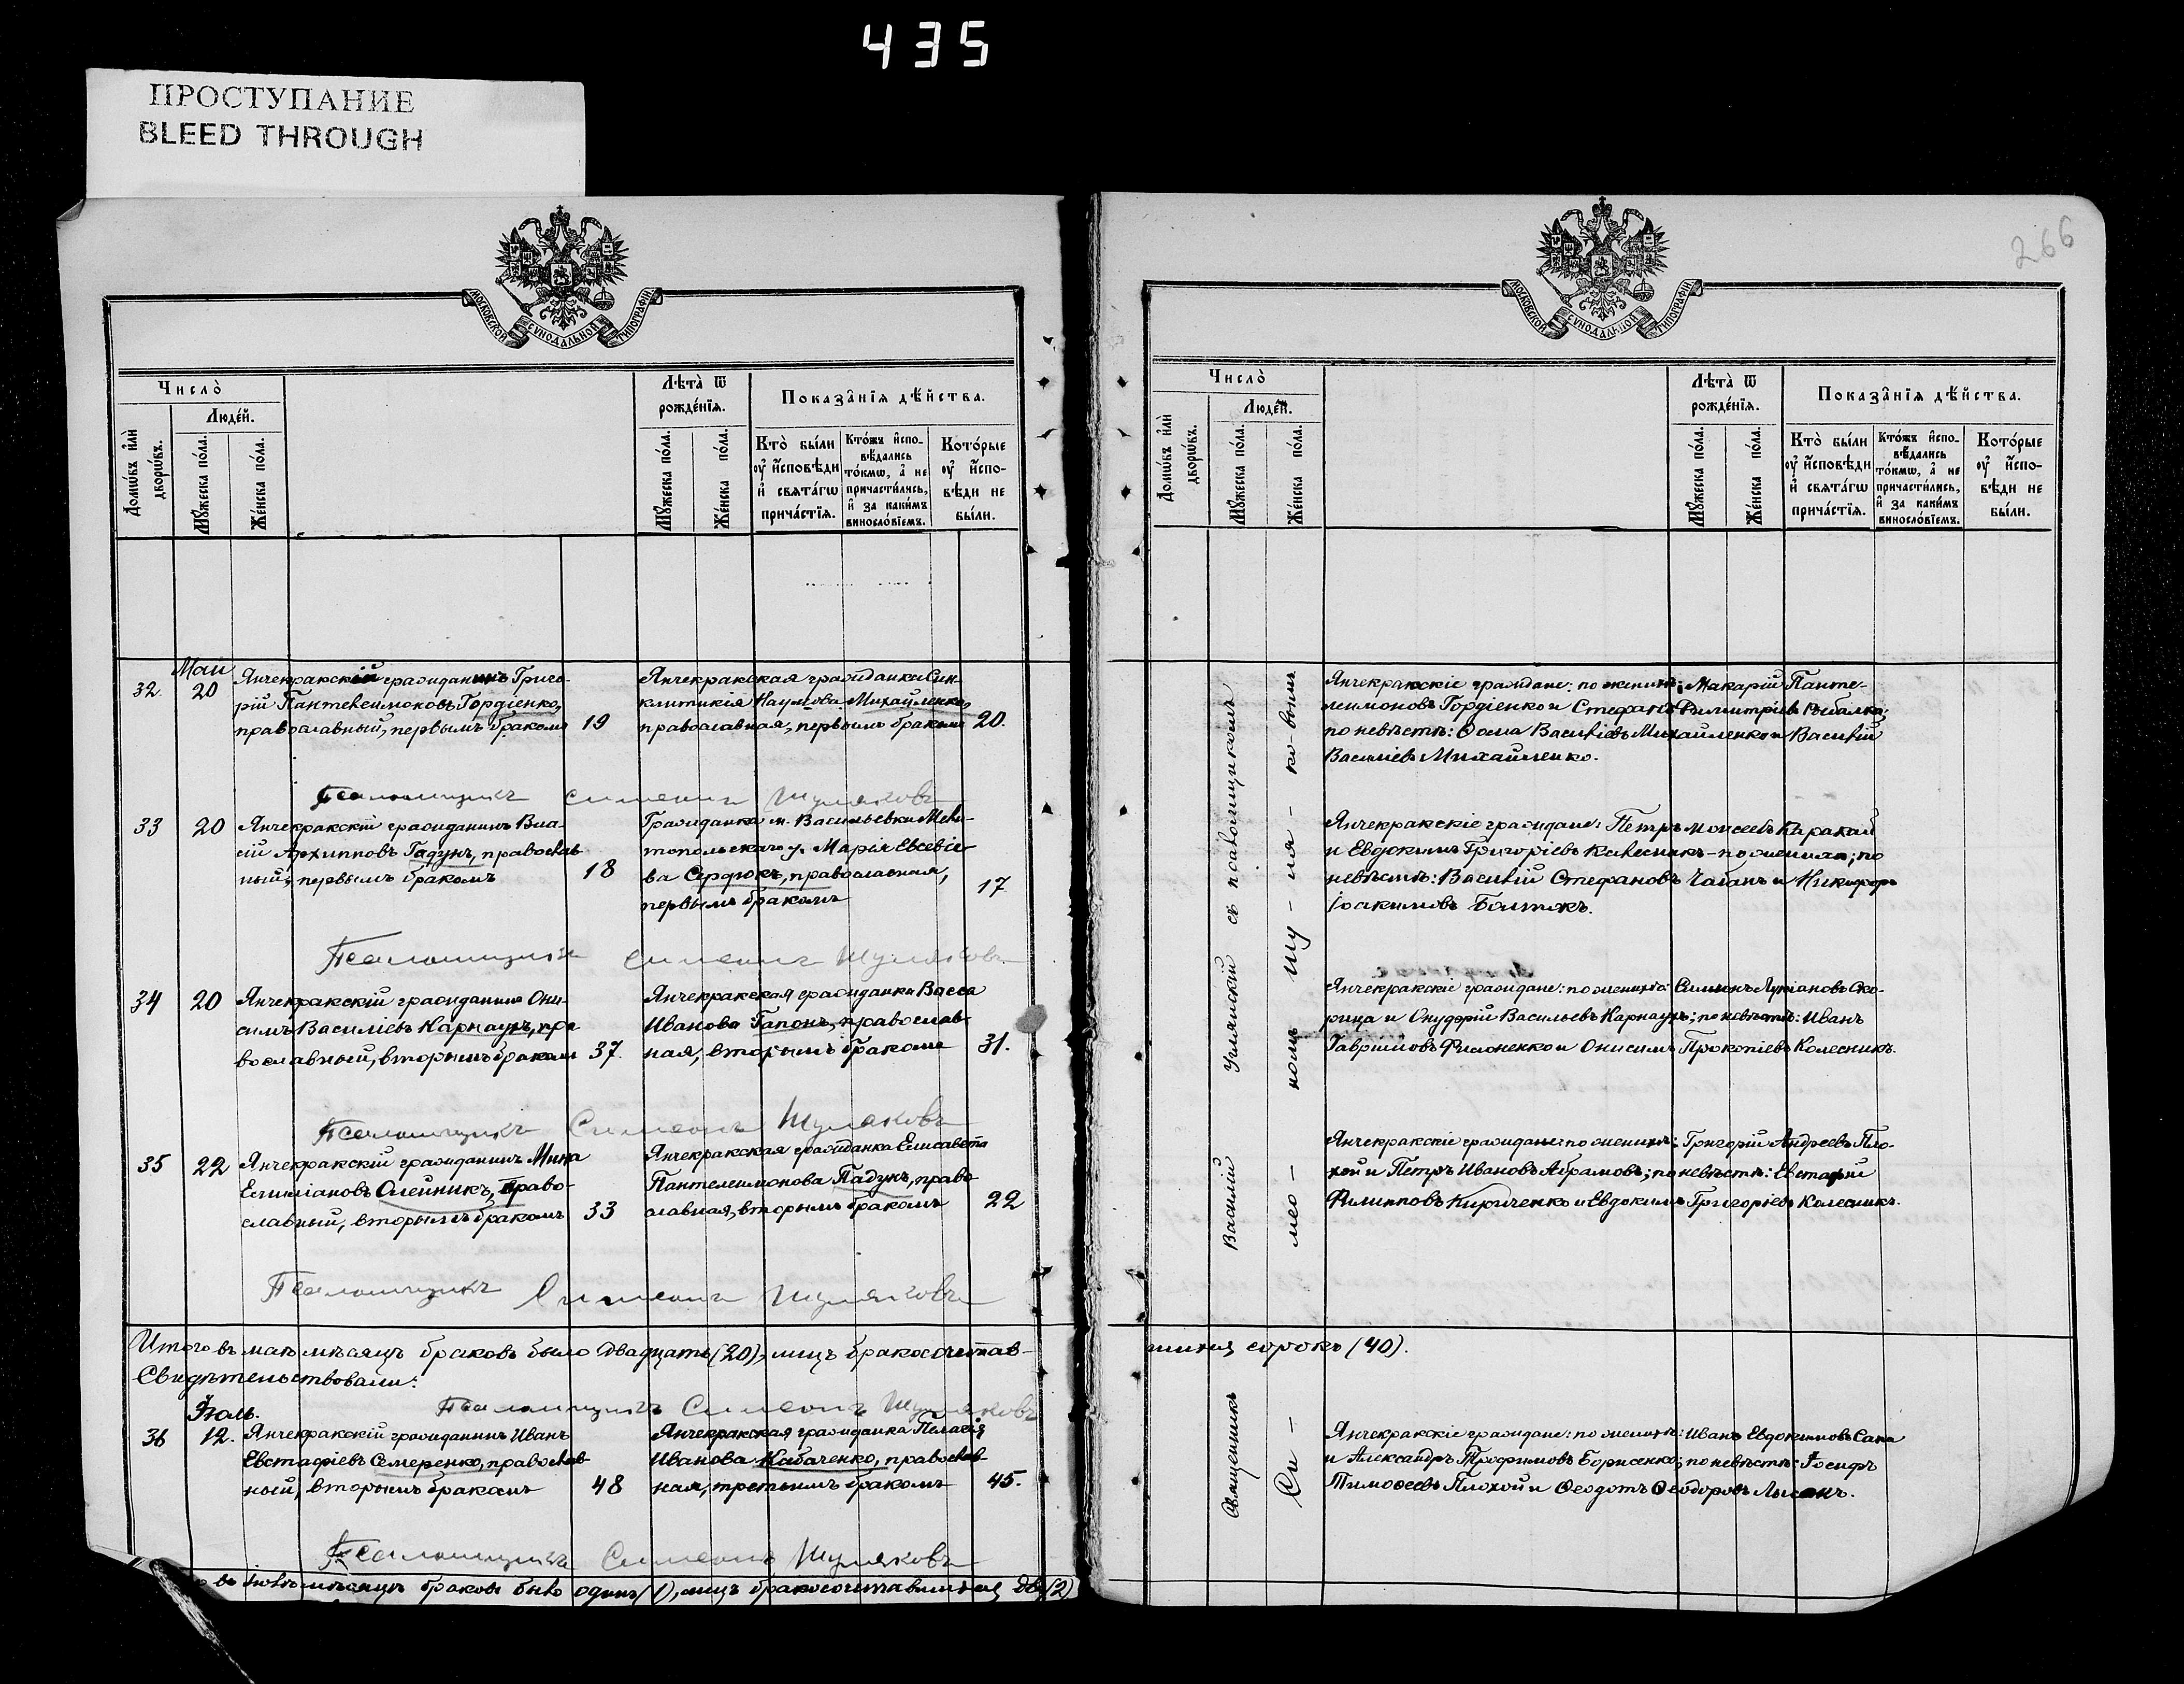 435
ПРОСТУПАНИЕ
BLEED THROUGH
266
МОСКОВСКОЙ СѴНОДАЛЬНОЙ ТИПОГРАФІИ
Число̀
Домѡ́въ и҆лѝ дворѡ́въ.
Люде́й.
Мꙋ́жеска по́ла.
Же́нска по́ла.
Лѣта̀ ѿ рожде́нїѧ.
Мꙋ́жеска по́ла.
Же́нска по́ла.
Показа̑нїѧ дѣ́йства.
Кто̀ бы́ли
ᲂу҆ и҆́сповѣди
и҆ свѧта́гѡ
прича́стїѧ.
Кто́жъ и҆спо-
вѣ́дались
то́кмѡ, а҆ не
причасти́лись,
и҆ за каки́мъ
виносло́вїемъ.
Кото́рые
ᲂу҆ и҆́спо-
вѣди не
бы́ли.
Май
32 20 Янчекракскій гражданинъ Григо-
рій Пантелеимоновъ Гордіенко,
православный, первымъ бракомъ 19
Янчекракская гражданка Син-
клитикія Наумова Михайленко,
православная, первымъ бракомъ 20.
Псаломщикъ Симеонъ Шумяковъ
33 20 Янчекракскій гражданинъ Вла-
сій Архипповъ Гадунъ, православ-
ный, первымъ бракомъ 18
Гражданка м. Васильевки Мели-
топольскаго у. Марія Евсевіе-
ва Сердюкъ, православная,
первымъ бракомъ 17
Псаломщикъ Симеонъ Шумяковъ
34 20 Янчекракскій гражданинъ Они-
симъ Василіевъ Карнаухъ, пра-
вославный, вторымъ бракомъ 37.
Янчекракская гражданка Васса
Иванова Гапонъ, православ-
ная, вторымъ бракомъ 31.
Псаломщикъ Симеонъ Шумяковъ
35 22 Янчекракскій гражданинъ Мина
Емиліановъ Олейникъ, право-
славный, вторымъ бракомъ 33
Янчекракская гражданка Елисавета
Пантелеимонова Падунъ, право-
славная, вторымъ бракомъ 22
Псаломщикъ Симеонъ Шумяковъ
Итого въ маѣ мѣсяцѣ браковъ было двадцать (20), лицъ бракосочетав-
Свидѣтельствовали:
Псаломщикъ Симеонъ Шумяковъ
Іюль.
36 12. Янчекракскій гражданинъ Иванъ
Евстафіевъ Семеренко, православ-
ный, вторымъ бракомъ 48
Янчекракская гражданка Пелагія
Иванова Кабаченко, православ-
ная, третьимъ бракомъ 45.
Псаломщикъ Симеонъ Шумяковъ
въ іюлѣ мѣсяцѣ браковъ было одинъ (1), лицъ бракосочетавшихся два (2)
МОСКОВСКОЙ СѴНОДАЛЬНОЙ ТИПОГРАФІИ
Число̀
Домѡ́въ и҆лѝ дворѡ́въ.
Люде́й.
Мꙋ́жеска по́ла.
Же́нска по́ла.
Лѣта̀ ѿ рожде́нїѧ.
Мꙋ́жеска по́ла.
Же́нска по́ла.
Показа̑нїѧ дѣ́йства.
Кто̀ бы́ли
ᲂу҆ и҆́сповѣди
и҆ свѧта́гѡ
прича́стїѧ.
Кто́жъ и҆спо-
вѣ́дались
то́кмѡ, а҆ не
причасти́лись,
и҆ за каки́мъ
виносло́вїемъ.
Кото́рые
ᲂу҆ и҆́спо-
вѣди не
бы́ли.
Священникъ Василій съ псаломщикомъ
Си - мео - номъ Шу - мя - ко-вымъ
Янчекракскіе граждане: по женихѣ: Макарій Панте-
леимоновъ Гордіенко и Стефанъ Димитріевъ Рыбалка;
по невѣстѣ: Ѳома Василіевъ Михайленко и Василій
Василіевъ Михайленко.
Янчекракскіе граждане: Петръ Моисеевъ
и Евдокимъ Григоріевъ Колесникъ - по женихѣ; по
невѣстѣ: Василій Стефановъ Чабанъ и Никифоръ
Іоакимовъ
Янчекракскіе граждане: по женихѣ: Симеонъ Лукіановъ Ско-
рица и Онуфрій Васильевъ Карнаухъ; по невѣстѣ: Иванъ
Гавріиловъ Филоненко и Онисимъ Прокопіевъ Колесникъ.
Янчекракскіе граждане по женихѣ: Григорій Андреевъ Пло-
хой и Петръ Ивановъ Абрамовъ; по невѣстѣ: Евстафій
Филипповъ Кириченко и Евдокимъ Григорьевъ Колесникъ.
шихся сорокъ (40).
Янчекракскіе граждане: по женихѣ: Иванъ Евдокимовъ Сапа
и Александръ Трофимовъ Борисенко; по невѣстѣ: Іосифъ
Тимоѳеевъ Плохой и Ѳеодотъ Ѳеодоровъ Лысакъ.